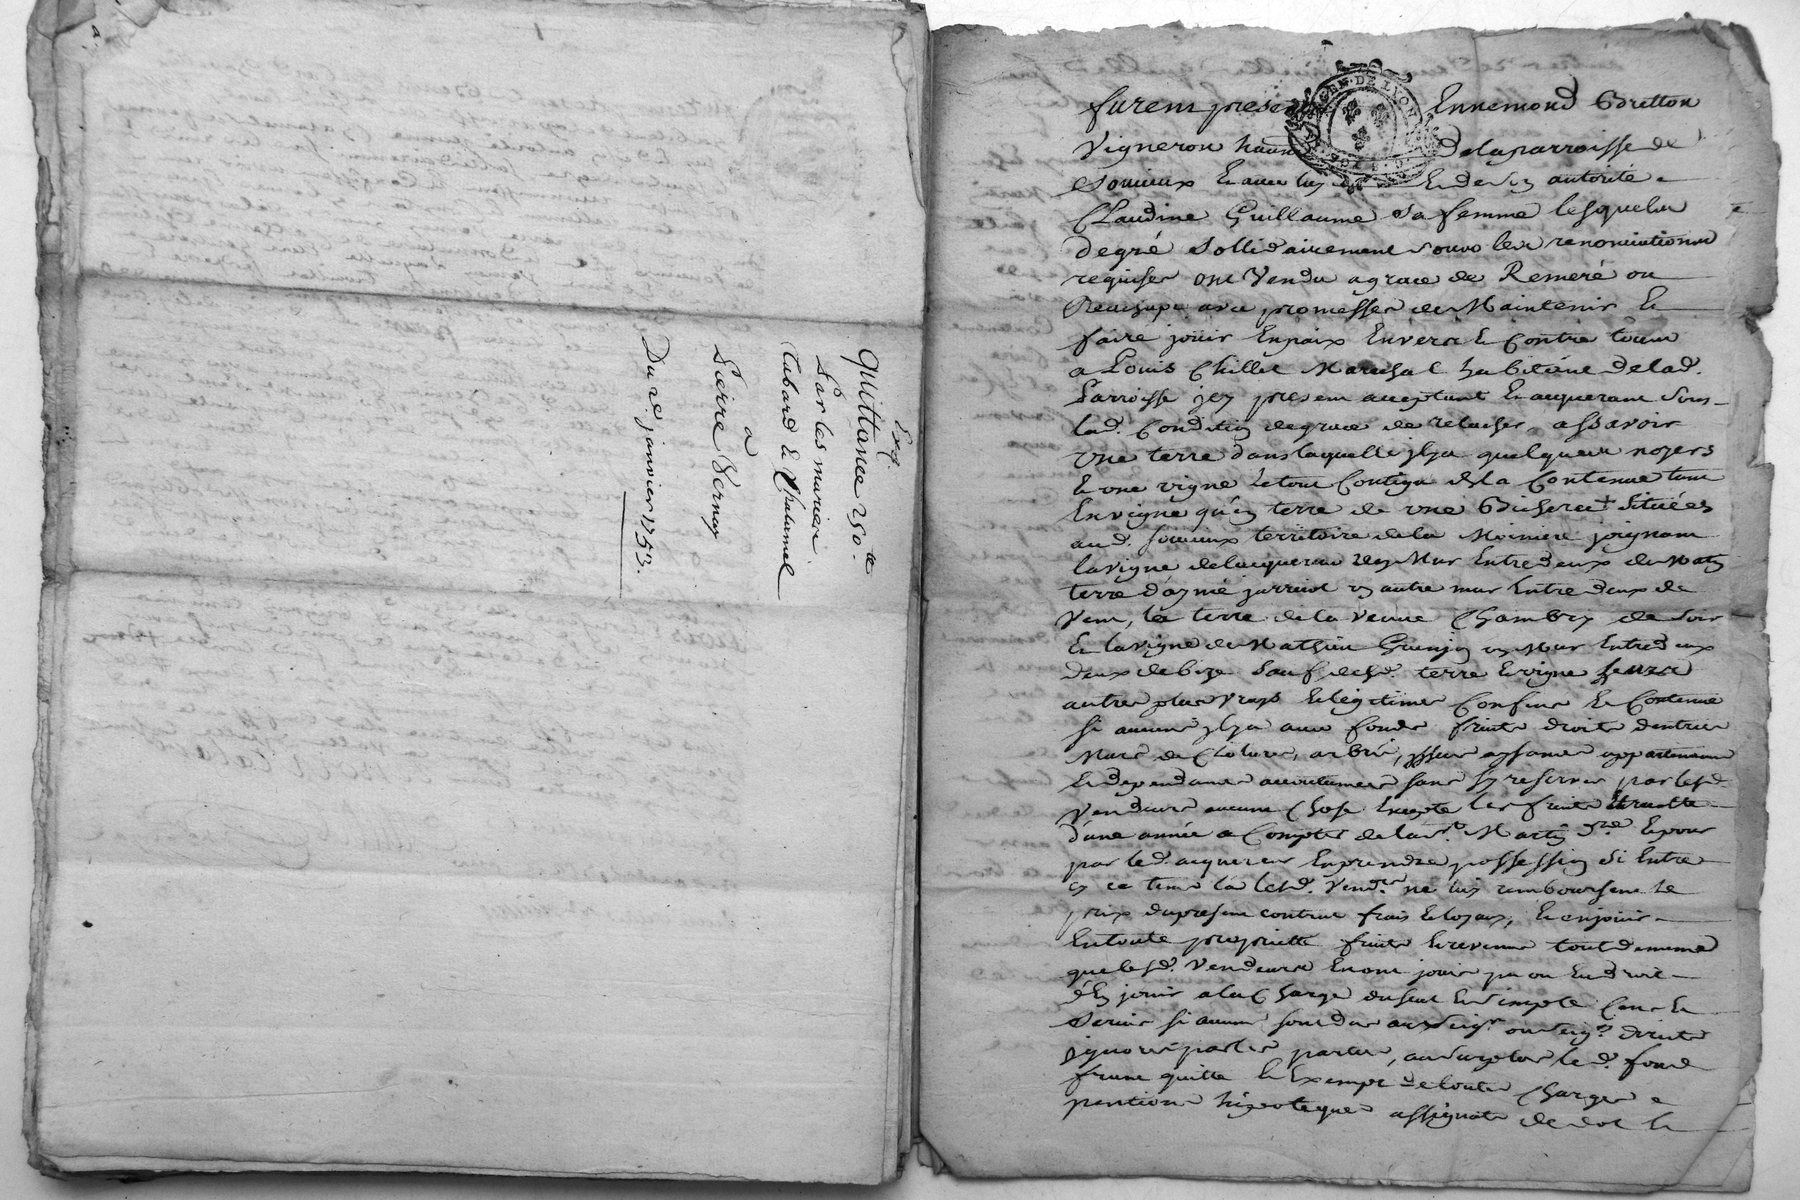 Exp
Quittance 250.
Par les mariés
Tabard & Chatumel
a
Pierre Vernay
Du 2e janvier 1753.
GEN · DE LYON
furent present Ennemond Bretton
Vigneron de la parroisse de
Soucieux et avec luy et de son autorité
Claudine Guillaume sa femme lesquels
degré sollidairement sous les renonciations
requises ont Vendu a grace de Remeré ou
Reachapt avec promesses de Maintenir et
faire jouir En paix Envers et Contre tous
a Louis Chillet Marechal habitant de lad.
Parroisse jcy present acceptant et acquerant sous
lad. Condition de grace de rachet assavoir
Une terre dans laquelle jlya quelques noyers
et une vigne le tout Contigu de la Contenue tant
En vigne qu'en terre de une Bicherée + Situées
aud. Soucieux territoire de la joignant
la vigne de lacquereur un Mur Entredeux de Matin
terre d'aymé un autre mur Entre deux de
Vent, la terre de la Veuve Chambry de soir
et la vigne de Mathieu un Mur Entredeux
deux de bize Sauf desd. terre et vigne leurs
autres plus Vrays et légitimes Confins et Contenue
si aucuns jlya avec fonds fruits droits dentrée
Murs de Clotures, arbres, appartenances
et dependances accoutumées sans sy reserver par lesd.
Vendeurs aucune Chose Excepté les fruits
d'une année a Compter de la St. Martin Et pour
par led. acquereur En prendre possession Si Entre
cy ce tems la lesd. Vendrs. ne luy remboursent le
prix du present contrat frais et loyaux, et en jouir
En toute proprieté fruits et revenus tout de meme
que lesd. Vendeurs En ont jouis pu ou eu droit
d'En jouir a la Charge du seul et simple Cens et
Servis si aucuns sont dus aux seigr. ou seigrs. directs
ignorés par les parties, au surplus led. fond
franc quitte et Exempt de toutes Charges
pentions hipoteques assignats de dot et